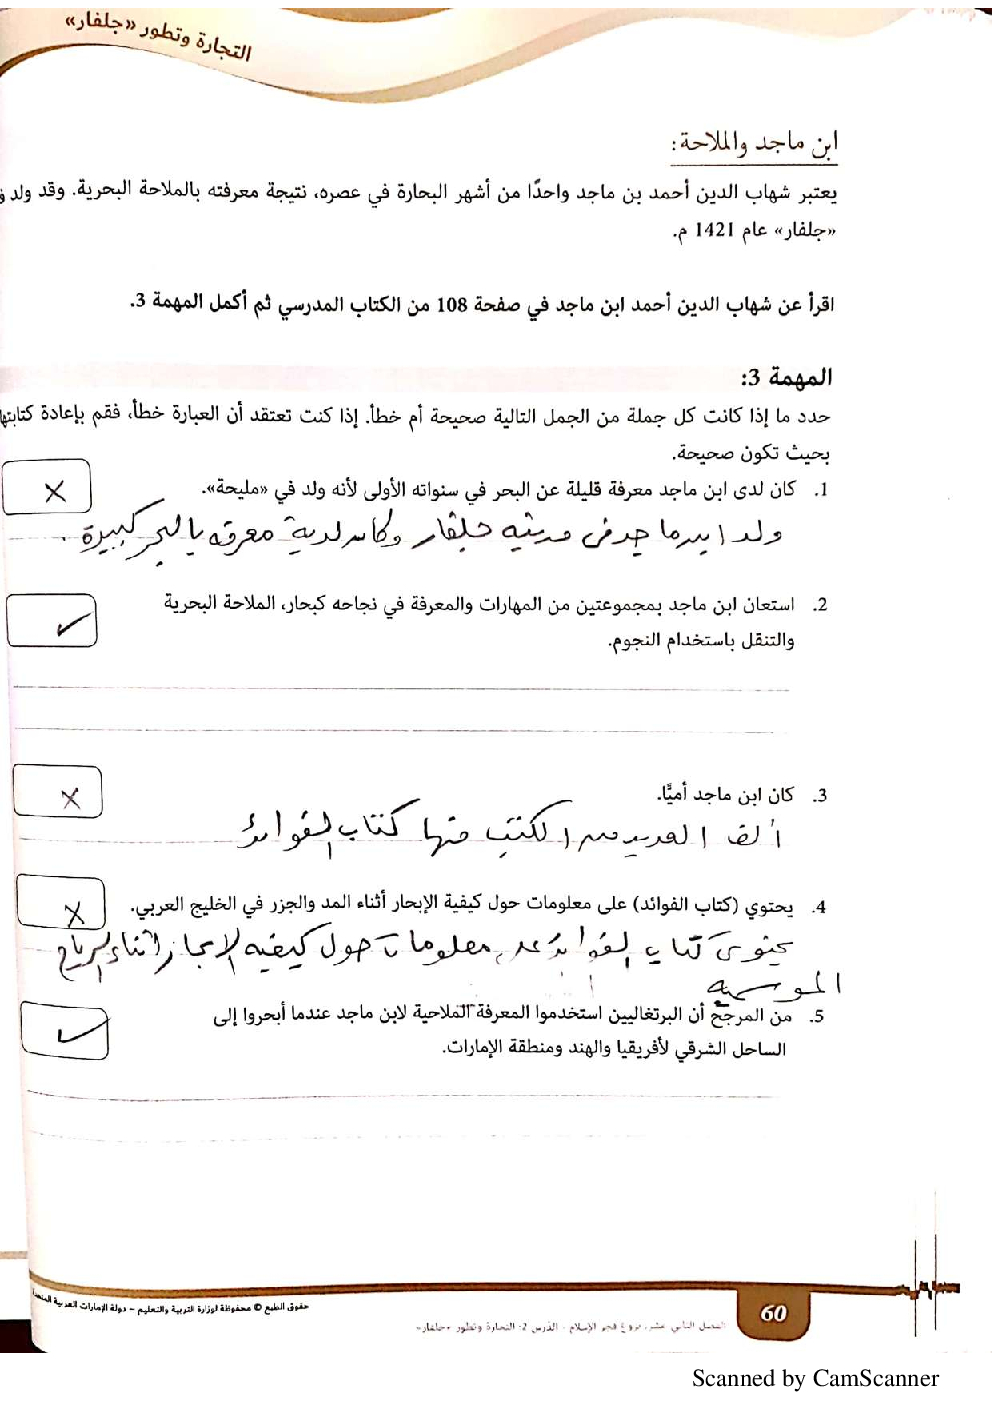 التجارة وتطور «جلفار»
ابن ماجد والملاحة:
يعتبر شهاب الدين أحمد بن ماجد واحدًا من أشهر البحارة في عصره، نتيجة معرفته بالملاحة البحرية. وقد ولد
«جلفار» عام 1421 م.
اقرأ عن شهاب الدين أحمد ابن ماجد في صفحة 108 من الكتاب المدرسي ثم أكمل المهمة 3.
المهمة 3:
حدد ما إذا كانت كل جملة من الجمل التالية صحيحة أم خطأ. إذا كنت تعتقد أن العبارة خطأ، فقم بإعادة كتابتها
بحيث تكون صحيحة.
1. كان لدى ابن ماجد معرفة قليلة عن البحر في سنواته الأولى لأنه ولد في «مليحة». ✗
ولد ابن ماجد في مدينه جلفار وكان لدية معرفه بالبحر كبيرة.
2. استعان ابن ماجد بمجموعتين من المهارات والمعرفة في نجاحه كبحار، الملاحة البحرية ✓
والتنقل باستخدام النجوم.
3. كان ابن ماجد أميًّا. ✗
ألف العديد من الكتب منها كتاب الفوائد
4. يحتوي (كتاب الفوائد) على معلومات حول كيفية الإبحار أثناء المد والجزر في الخليج العربي. ✗
يحتوى كتاب الفوائد على معلومات حول كيفيه الابحار اثناء الرياح
الموسميه
5. من المرجح أن البرتغاليين استخدموا المعرفة الملاحية لابن ماجد عندما أبحروا إلى ✓
الساحل الشرقي لأفريقيا والهند ومنطقة الإمارات.
حقوق الطبع © محفوظة لوزارة التربية والتعليم – دولة الإمارات العربية المتحدة
60
الفصل الثاني عشر، بزوغ فجر الإسلام - الدرس 2: التجارة وتطور «جلفار»
Scanned by CamScanner